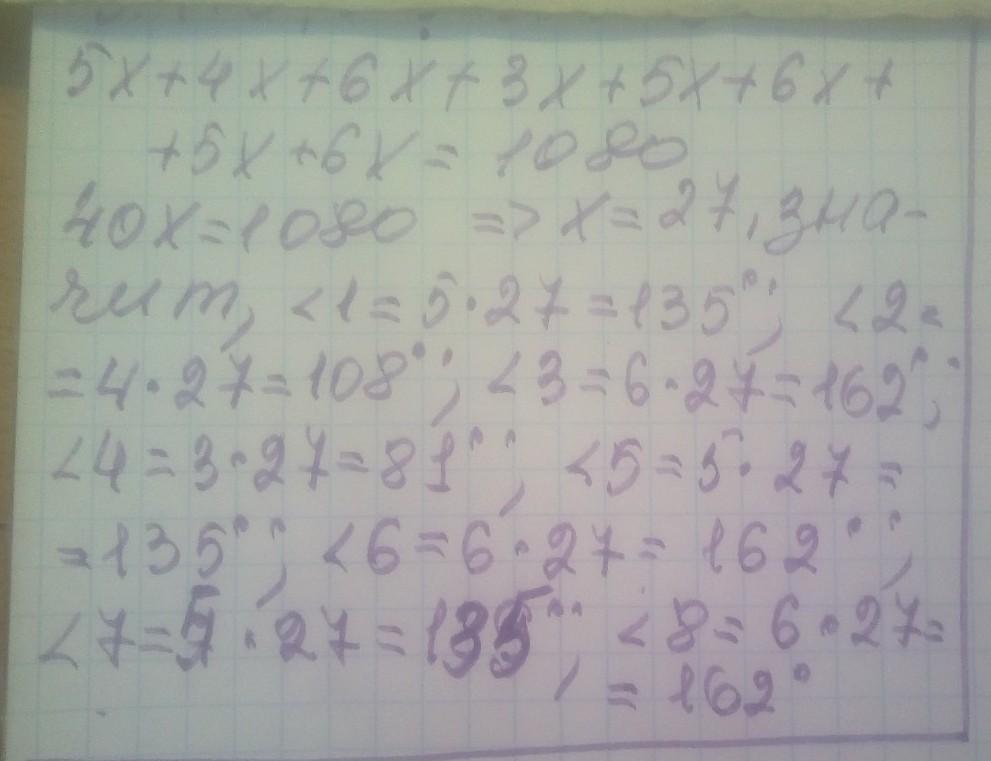 5x+4x+6x+3x+5x+6x+
+5x+6x=1080
40x=1080 => x=27, зна-
чит, <1=5·27=135°; <2=
=4·27=108°; <3=6·27=162°;
<4=3·27=81°; <5=5·27=
=135°; <6=6·27=162°;
<7=5·27=135°; <8=6·27=
=162°